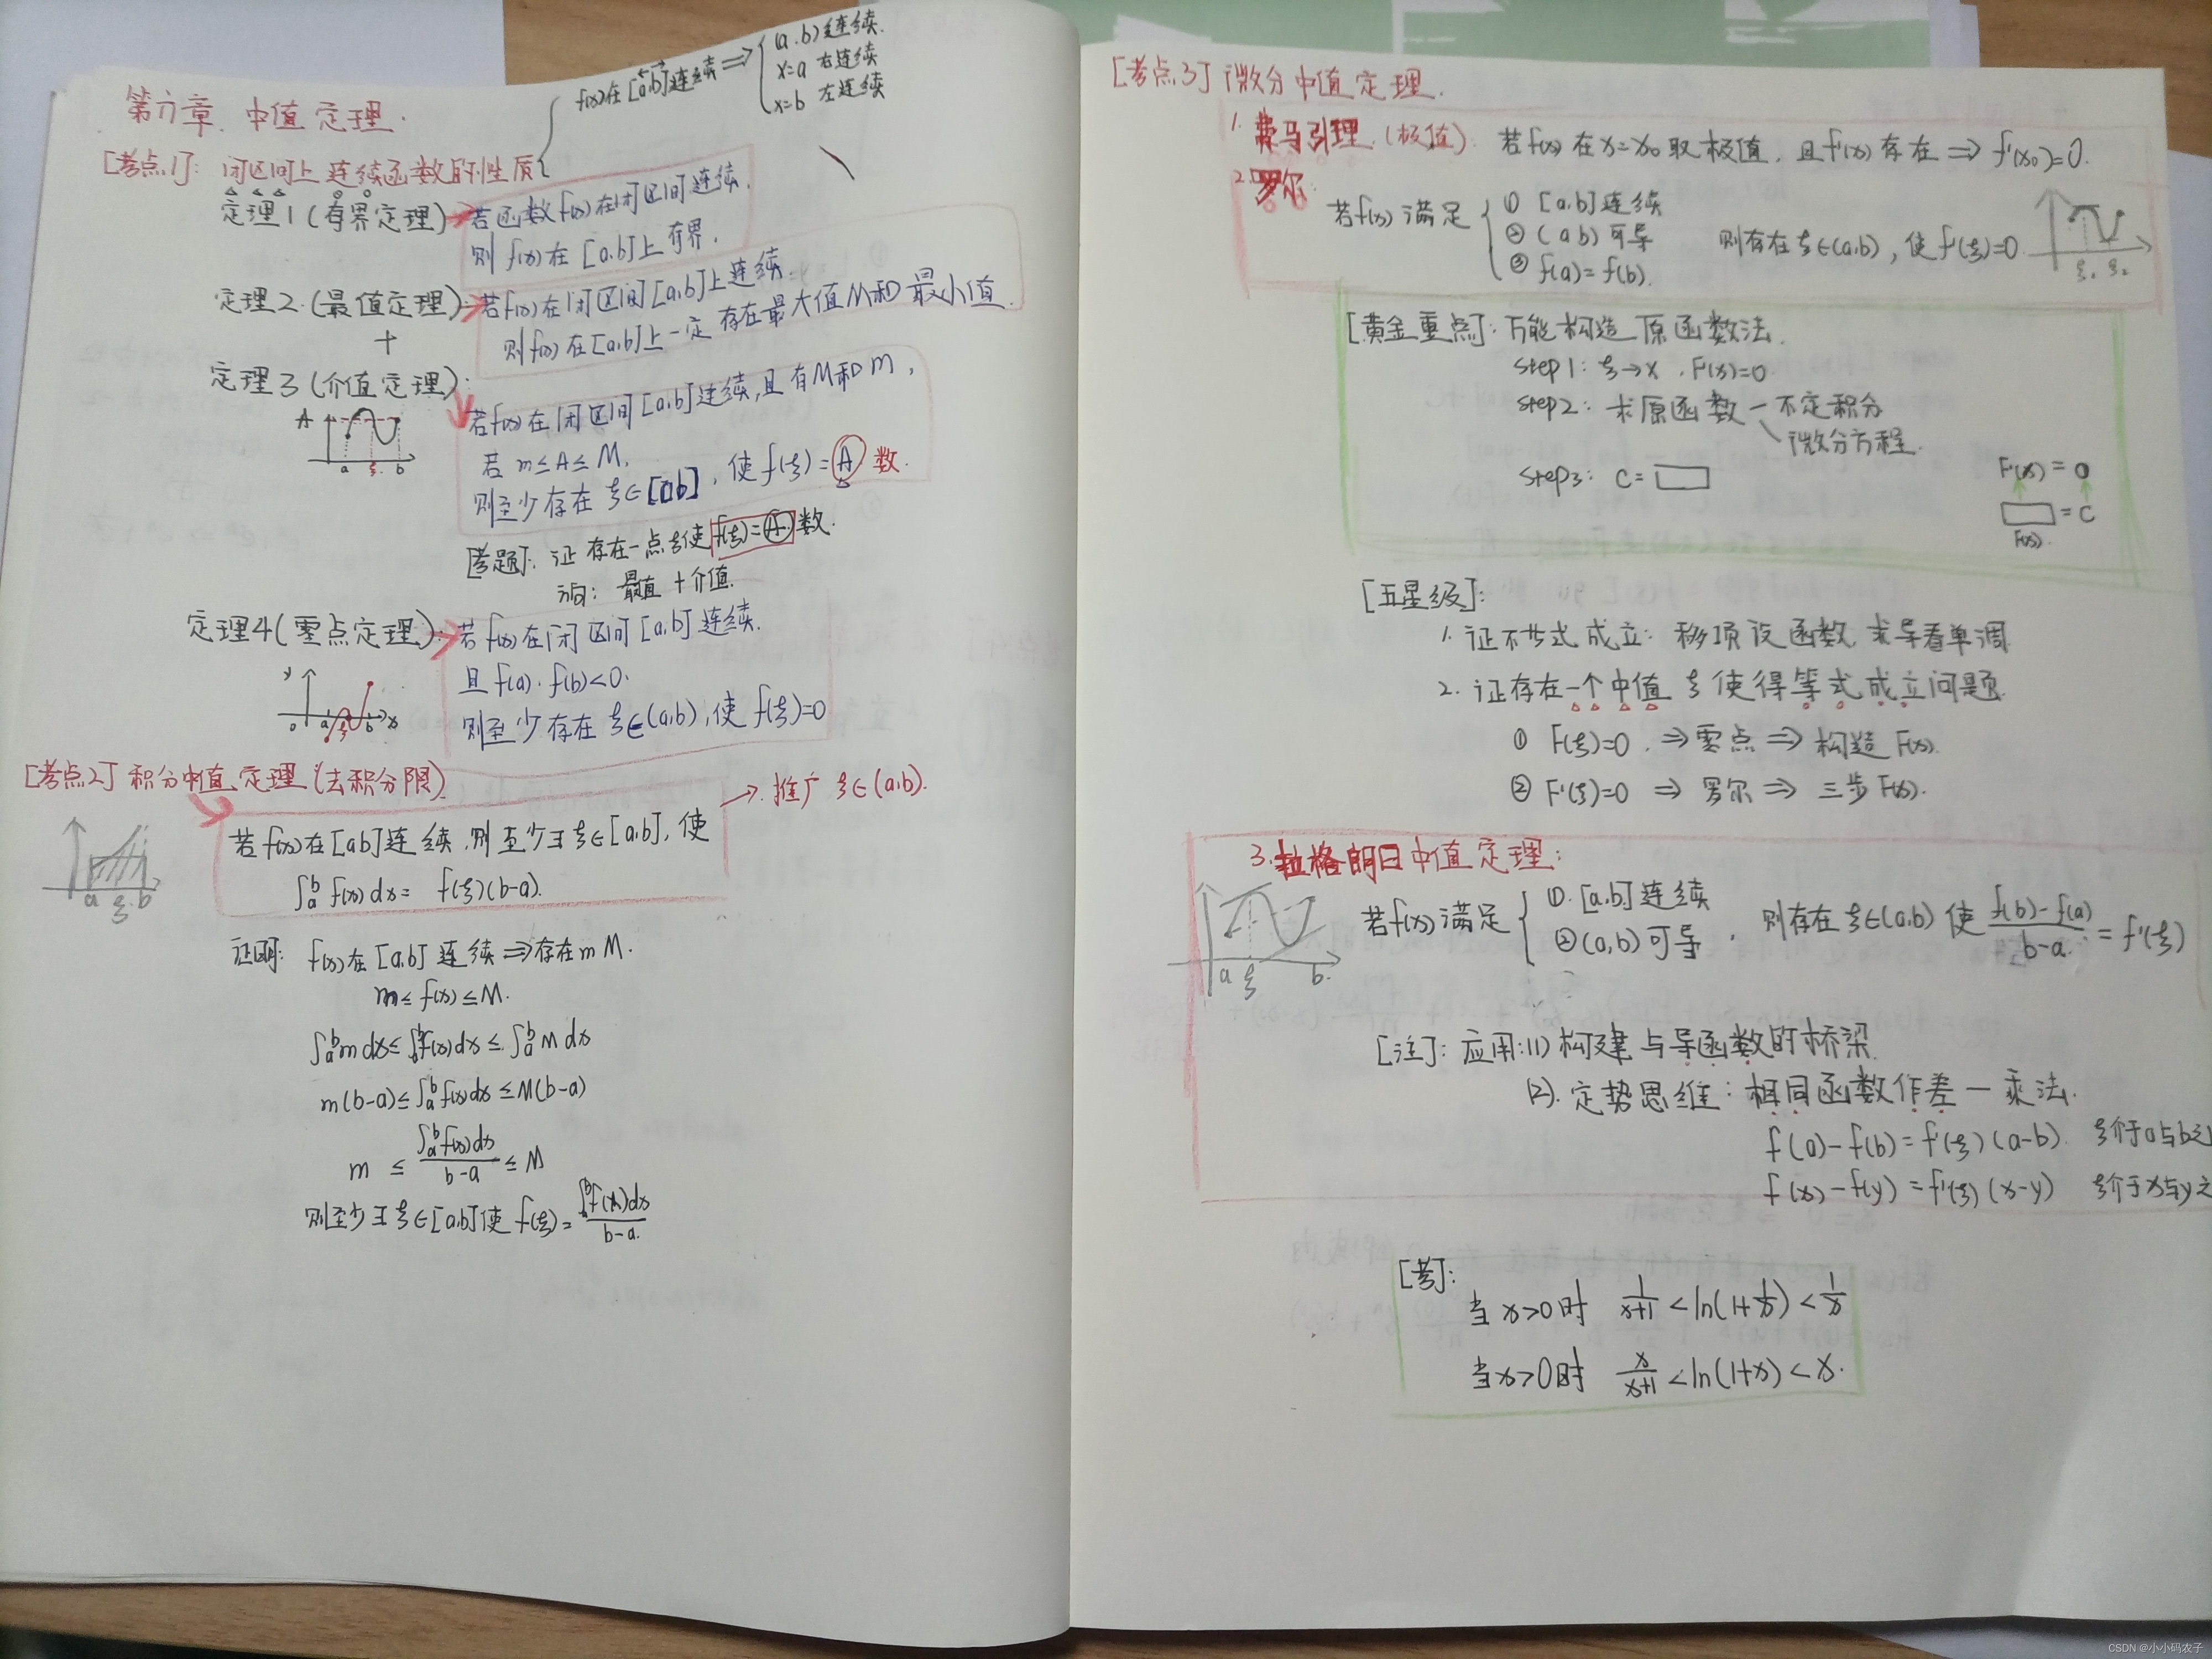 第六章 中值定理.
f(x)在[a,b]连续 ⇒ { (a,b)连续.
x=a 右连续
x=b 左连续
[考点1]: 闭区间上连续函数的性质
定理1(有界定理) 若函数f(x)在闭区间连续.
则 f(x)在 [a,b]上有界.
定理2.(最值定理): 若f(x)在闭区间[a,b]上连续.
则f(x)在[a,b]上一定存在最大值M和最小值.
+
定理3(介值定理):
若f(x)在闭区间[a,b]连续,且有M和m,
若 m≤A≤M,
则至少存在 ξ∈[a,b], 使 f(ξ)=A 数.
A
a ξ b
[考题]: 证存在一点ξ使f(ξ)=A数.
最值+介值.
定理4(零点定理): 若f(x)在闭区间[a,b]连续.
且 f(a)·f(b)<0.
则至少存在 ξ∈(a,b),使 f(ξ)=0
y
o a ξ b x
[考点2] 积分中值定理(去积分限)
→ 推广 ξ∈(a,b).
若f(x)在[a,b]连续,则至少∃ξ∈[a,b],使
∫ₐᵇ f(x)dx= f(ξ)(b-a).
a ξ b
证明: f(x)在[a,b]连续⇒存在m M.
m≤f(x)≤M.
∫ₐᵇ m dx≤∫ₐᵇ f(x)dx≤∫ₐᵇ M dx
m(b-a)≤∫ₐᵇ f(x)dx≤M(b-a)
m ≤ ∫ₐᵇ f(x)dx / (b-a) ≤ M
则至少∃ξ∈[a,b]使 f(ξ)= ∫ₐᵇ f(x)dx / (b-a)
[考点3] 微分中值定理.
1. 费马引理.(极值). 若f(x)在x=x₀取极值,且f'(x)存在⇒f'(x₀)=0.
2. 罗尔:
若f(x)满足 { ① [a,b]连续
② (a,b)可导
③ f(a)=f(b).
则存在ξ∈(a,b),使f'(ξ)=0.
ξ₁ ξ₂
[黄金重点]: 万能构造原函数法.
step1: ξ→x, F'(x)=0
step2: 求原函数 — 不定积分
微分方程.
step3: C=□
F'(x)=0
□=C
F(x).
[五星级]:
1. 证不等式成立: 移项设函数,求导看单调
2. 证存在一个中值 ξ使得等式成立问题.
① F(ξ)=0, ⇒零点⇒ 构造 F(x).
② F'(ξ)=0 ⇒ 罗尔⇒ 三步F(x).
3. 拉格朗日中值定理:
若f(x)满足 { ①. [a,b]连续
②(a,b)可导
, 则存在ξ∈(a,b)使 (f(b)-f(a))/(b-a) = f'(ξ)
a ξ b.
[注]: 应用:(1)构建与导函数的桥梁.
(2). 定势思维: 相同函数作差一乘法.
f(a)-f(b)=f'(ξ)(a-b). ξ介于a与b之
f(x)-f(y)=f'(ξ)(x-y) ξ介于x与y之
[考]:
当x>0时 1/(x+1)<ln(1+1/x)<1/x
当x>0时 x/(x+1)<ln(1+x)<x.
CSDN @小小码农子